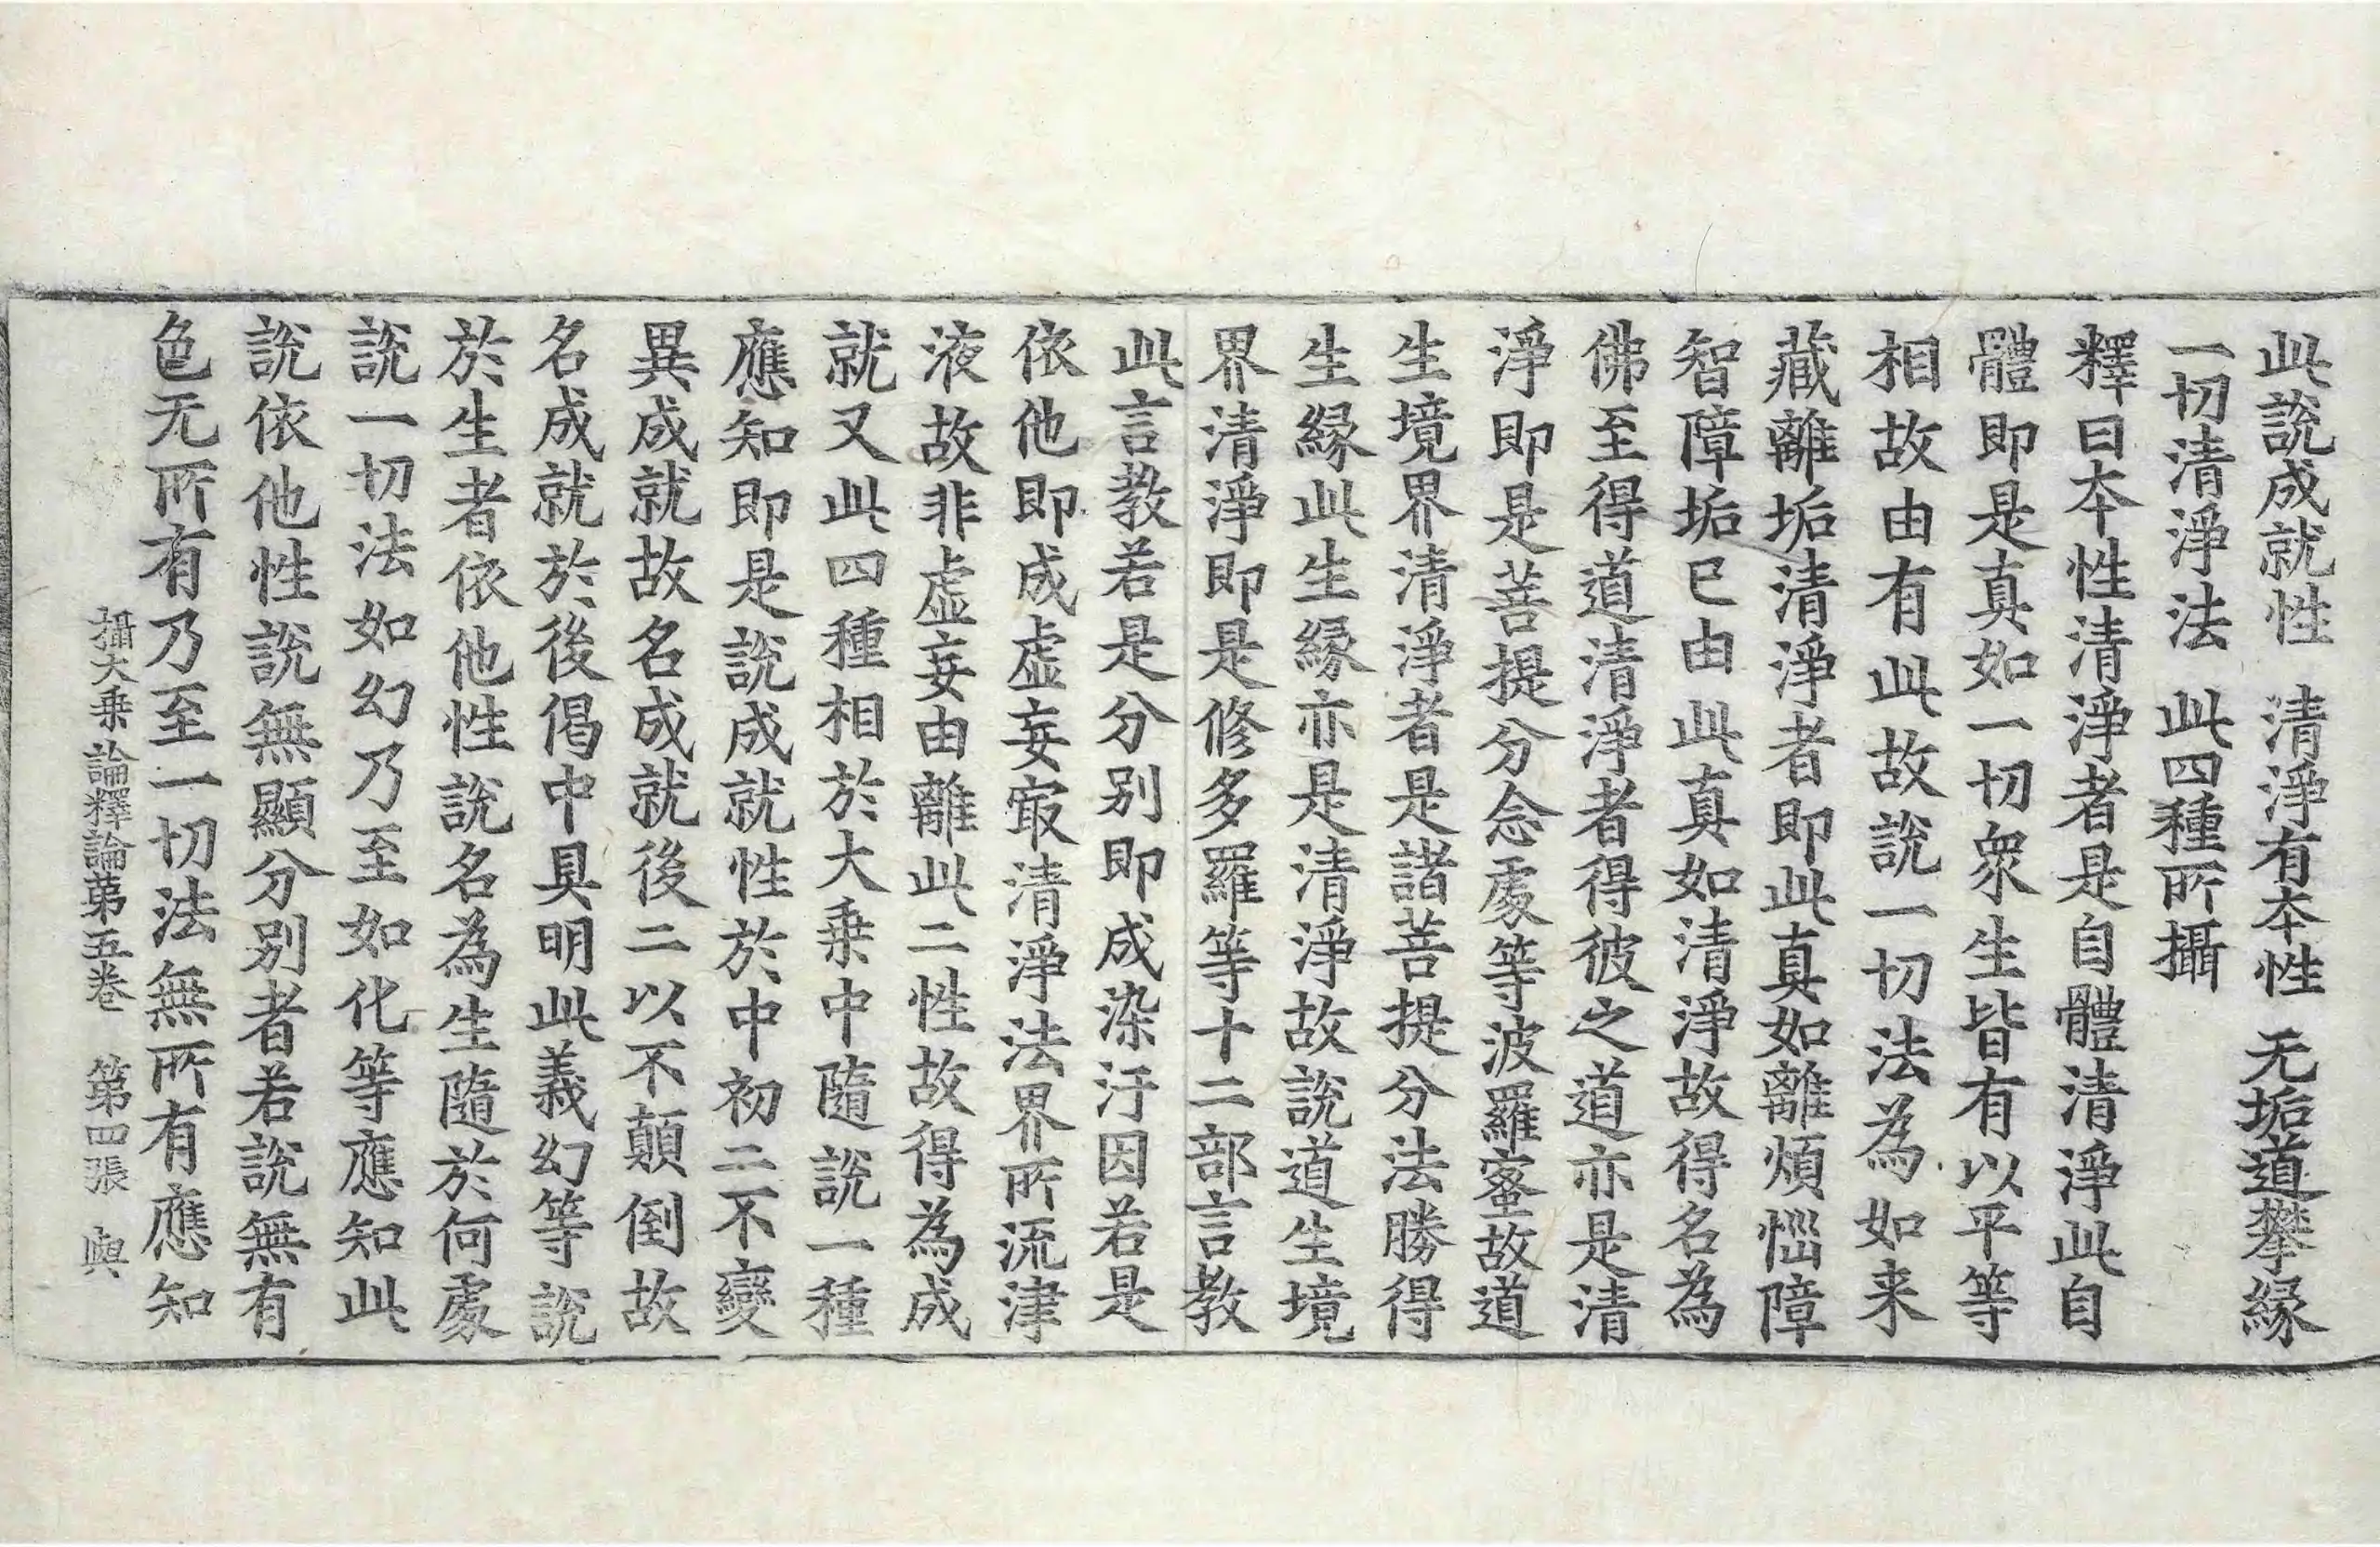 此說成就性　清淨有本性　无垢道攀緣
一切清淨法　此四種所攝
釋曰本性清淨者是自體清淨此自
體即是真如一切衆生皆有以平等
相故由有此故說一切法為如来
藏離垢清淨者即此真如離煩惱障
智障垢已由此真如清淨故得名為
佛至得道清淨者得彼之道亦是清
淨即是菩提分念處等波羅蜜故道
生境界清淨者是諸菩提分法勝得
生緣此生緣亦是清淨故說道生境
界清淨即是修多羅等十二部言教
此言教若是分別即成染汙因若是
依他即成虛妄㝡清淨法界所流津
液故非虛妄由離此二性故得為成
就又此四種相於大乗中隨說一種
應知即是說成就性於中初二不變
異成就故名成就後二以不顛倒故
名成就於後偈中具明此義幻等說
於生者依他性說名為生隨於何處
說一切法如幻乃至如化等應知此
說依他性說無顯分別者若說無有
色无所有乃至一切法無所有應知
攝大乗論釋論第五卷　第四張　與